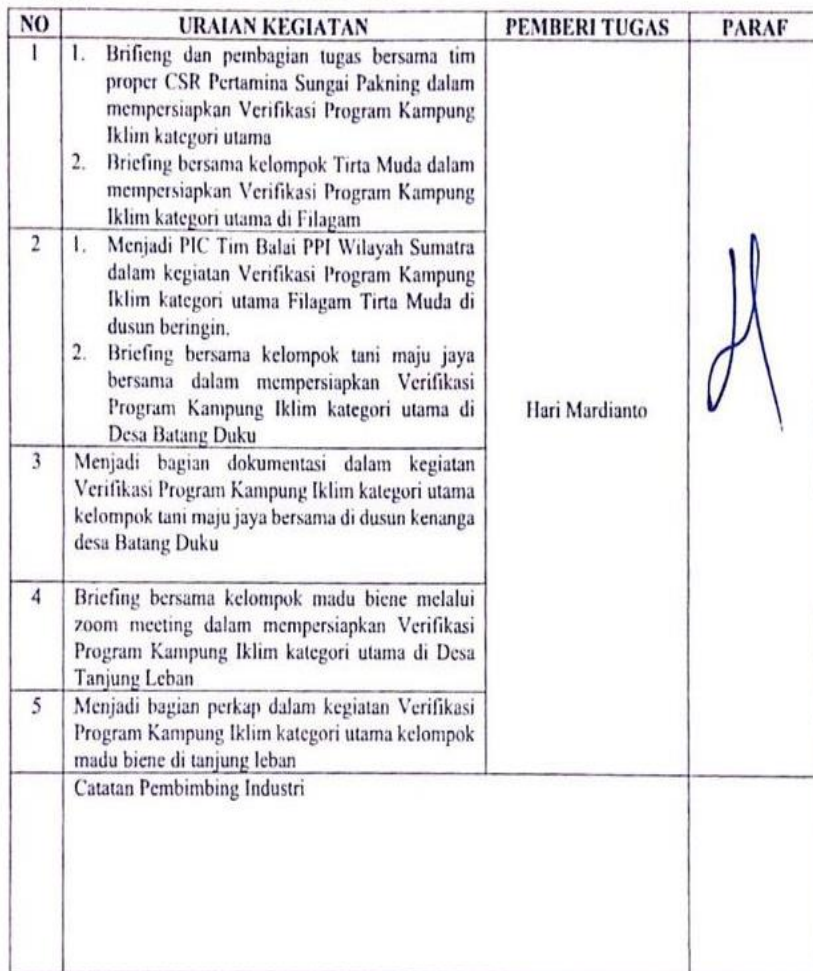 NO URAIAN KEGIATAN PEMBERI TUGAS PARAF
1 1. Brifieng dan pembagian tugas bersama tim
proper CSR Pertamina Sungai Pakning dalam
mempersiapkan Verifikasi Program Kampung
Iklim kategori utama
2. Briefing bersama kelompok Tirta Muda dalam
mempersiapkan Verifikasi Program Kampung
Iklim kategori utama di Filagam
2 1. Menjadi PIC Tim Balai PPI Wilayah Sumatra
dalam kegiatan Verifikasi Program Kampung
Iklim kategori utama Filagam Tirta Muda di
dusun beringin.
2. Briefing bersama kelompok tani maju jaya
bersama dalam mempersiapkan Verifikasi
Program Kampung Iklim kategori utama di
Desa Batang Duku
Hari Mardianto
3 Menjadi bagian dokumentasi dalam kegiatan
Verifikasi Program Kampung Iklim kategori utama
kelompok tani maju jaya bersama di dusun kenanga
desa Batang Duku
4 Briefing bersama kelompok madu biene melalui
zoom meeting dalam mempersiapkan Verifikasi
Program Kampung Iklim kategori utama di Desa
Tanjung Leban
5 Menjadi bagian perkap dalam kegiatan Verifikasi
Program Kampung Iklim kategori utama kelompok
madu biene di tanjung leban
Catatan Pembimbing Industri